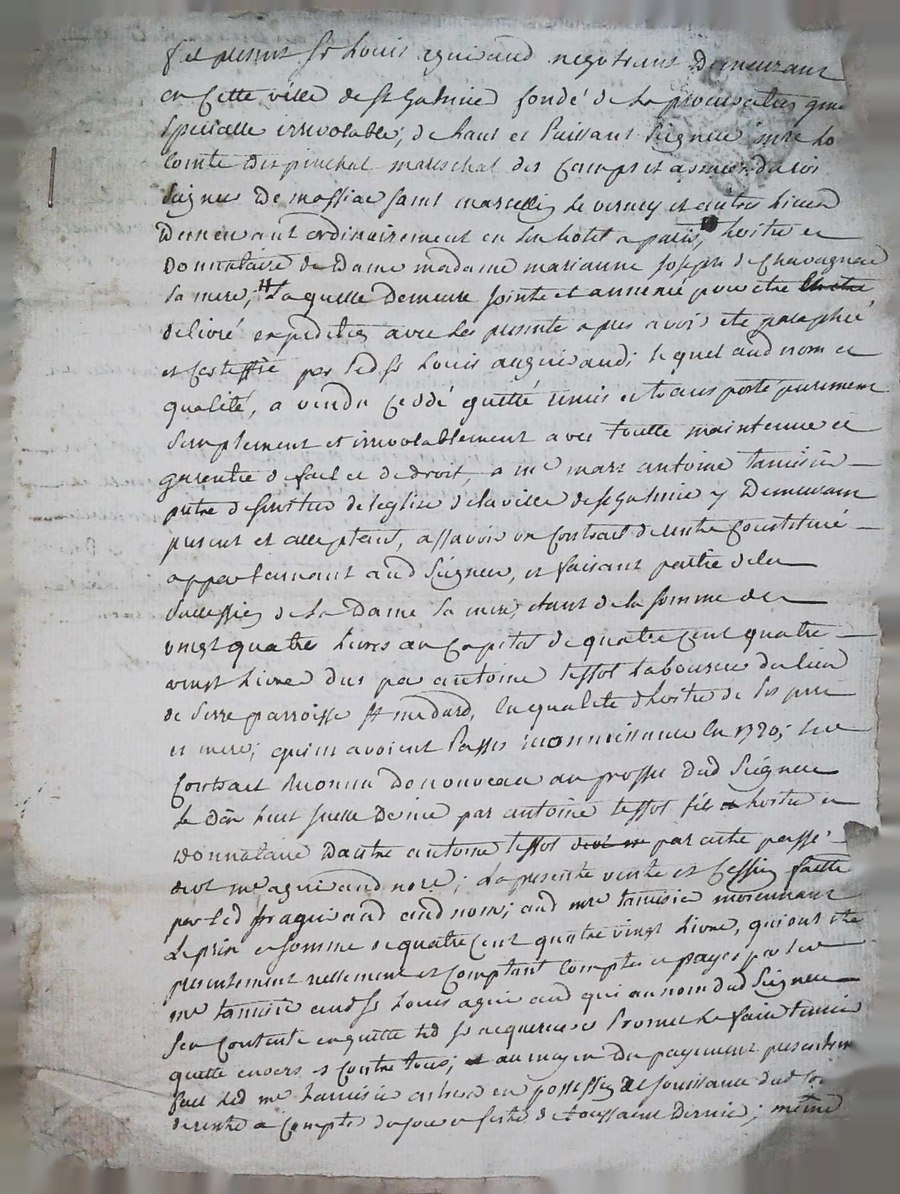 fut present Sr Louis aguiraud negotiant Demeurant
en Cette ville de St Galmier fondé de la procuration gnle
specialle irrevolable, de haut et Puissant Seigneur mre le
comte Despinchal mareschal des Camps et armées du roi
Seigneur De massiac saint marcellin le verney et autres Lieux
Demeurant ordinairement en son hotel a paris, heritier et
Donnataire de Dame madame marianne Joseph de Chavagnac
sa mere, laquelle Demeure jointe et annexé pour être
delivré expedition avec les presente apres avoir ete paraphée
et Certiffié par led Sr Louis aguiraud; lequel aud nom et
qualité, a vendu Cedé quitté remis et transporté purement
simplement et irrevolablement avec toutte maintenue et
garentie de fait et de droit, a me marc antoine tamisier
prêtre de l'eglise de la ville de St Galmier y Demeurant
present et acceptant, assavoir un Contrait de rente Constitué
appartennant aud Seigneur, et faisant partie de la
succession de la Dame sa mere, etant de la somme de
vingt quatre Livres au Capital de quatre Cent quatre
vingt Livre dus par antoine teissot Laboureur du lieu
de Serre parroisse St medard, en qualité d'heritier de ses pere
et mere; qui en avoient Passés reconnoissance en 1720; leu
Contrait reconnu de nouveau au proffit dud Seigneur
le dix huit juillet Dernier par antoine teissot fils heritier et
Donnataire D'autre antoine teissot par acte passé
devt me aguiraud nore; La presente vente et Cession faitte
par led Sr aguiraud aud nom; aud mre tamisier moiennant
Le prix et somme de quatre Cent quatre vingt Livre, qui ont été
presentement reellement et Comptant Comptés et payés par led
mre tamisier aud Sr Louis aguiraud qui au nom dud Seigneur
sen Contente en quitte led Sr acquereur et Promet Le faire tenir
quitte envers et Contre tous; au moyen du payement presentement
fait led mre tamisier entrera en possession et Jouissance dud
de rente a Compter du jour et feste de toussaint Dernier; même